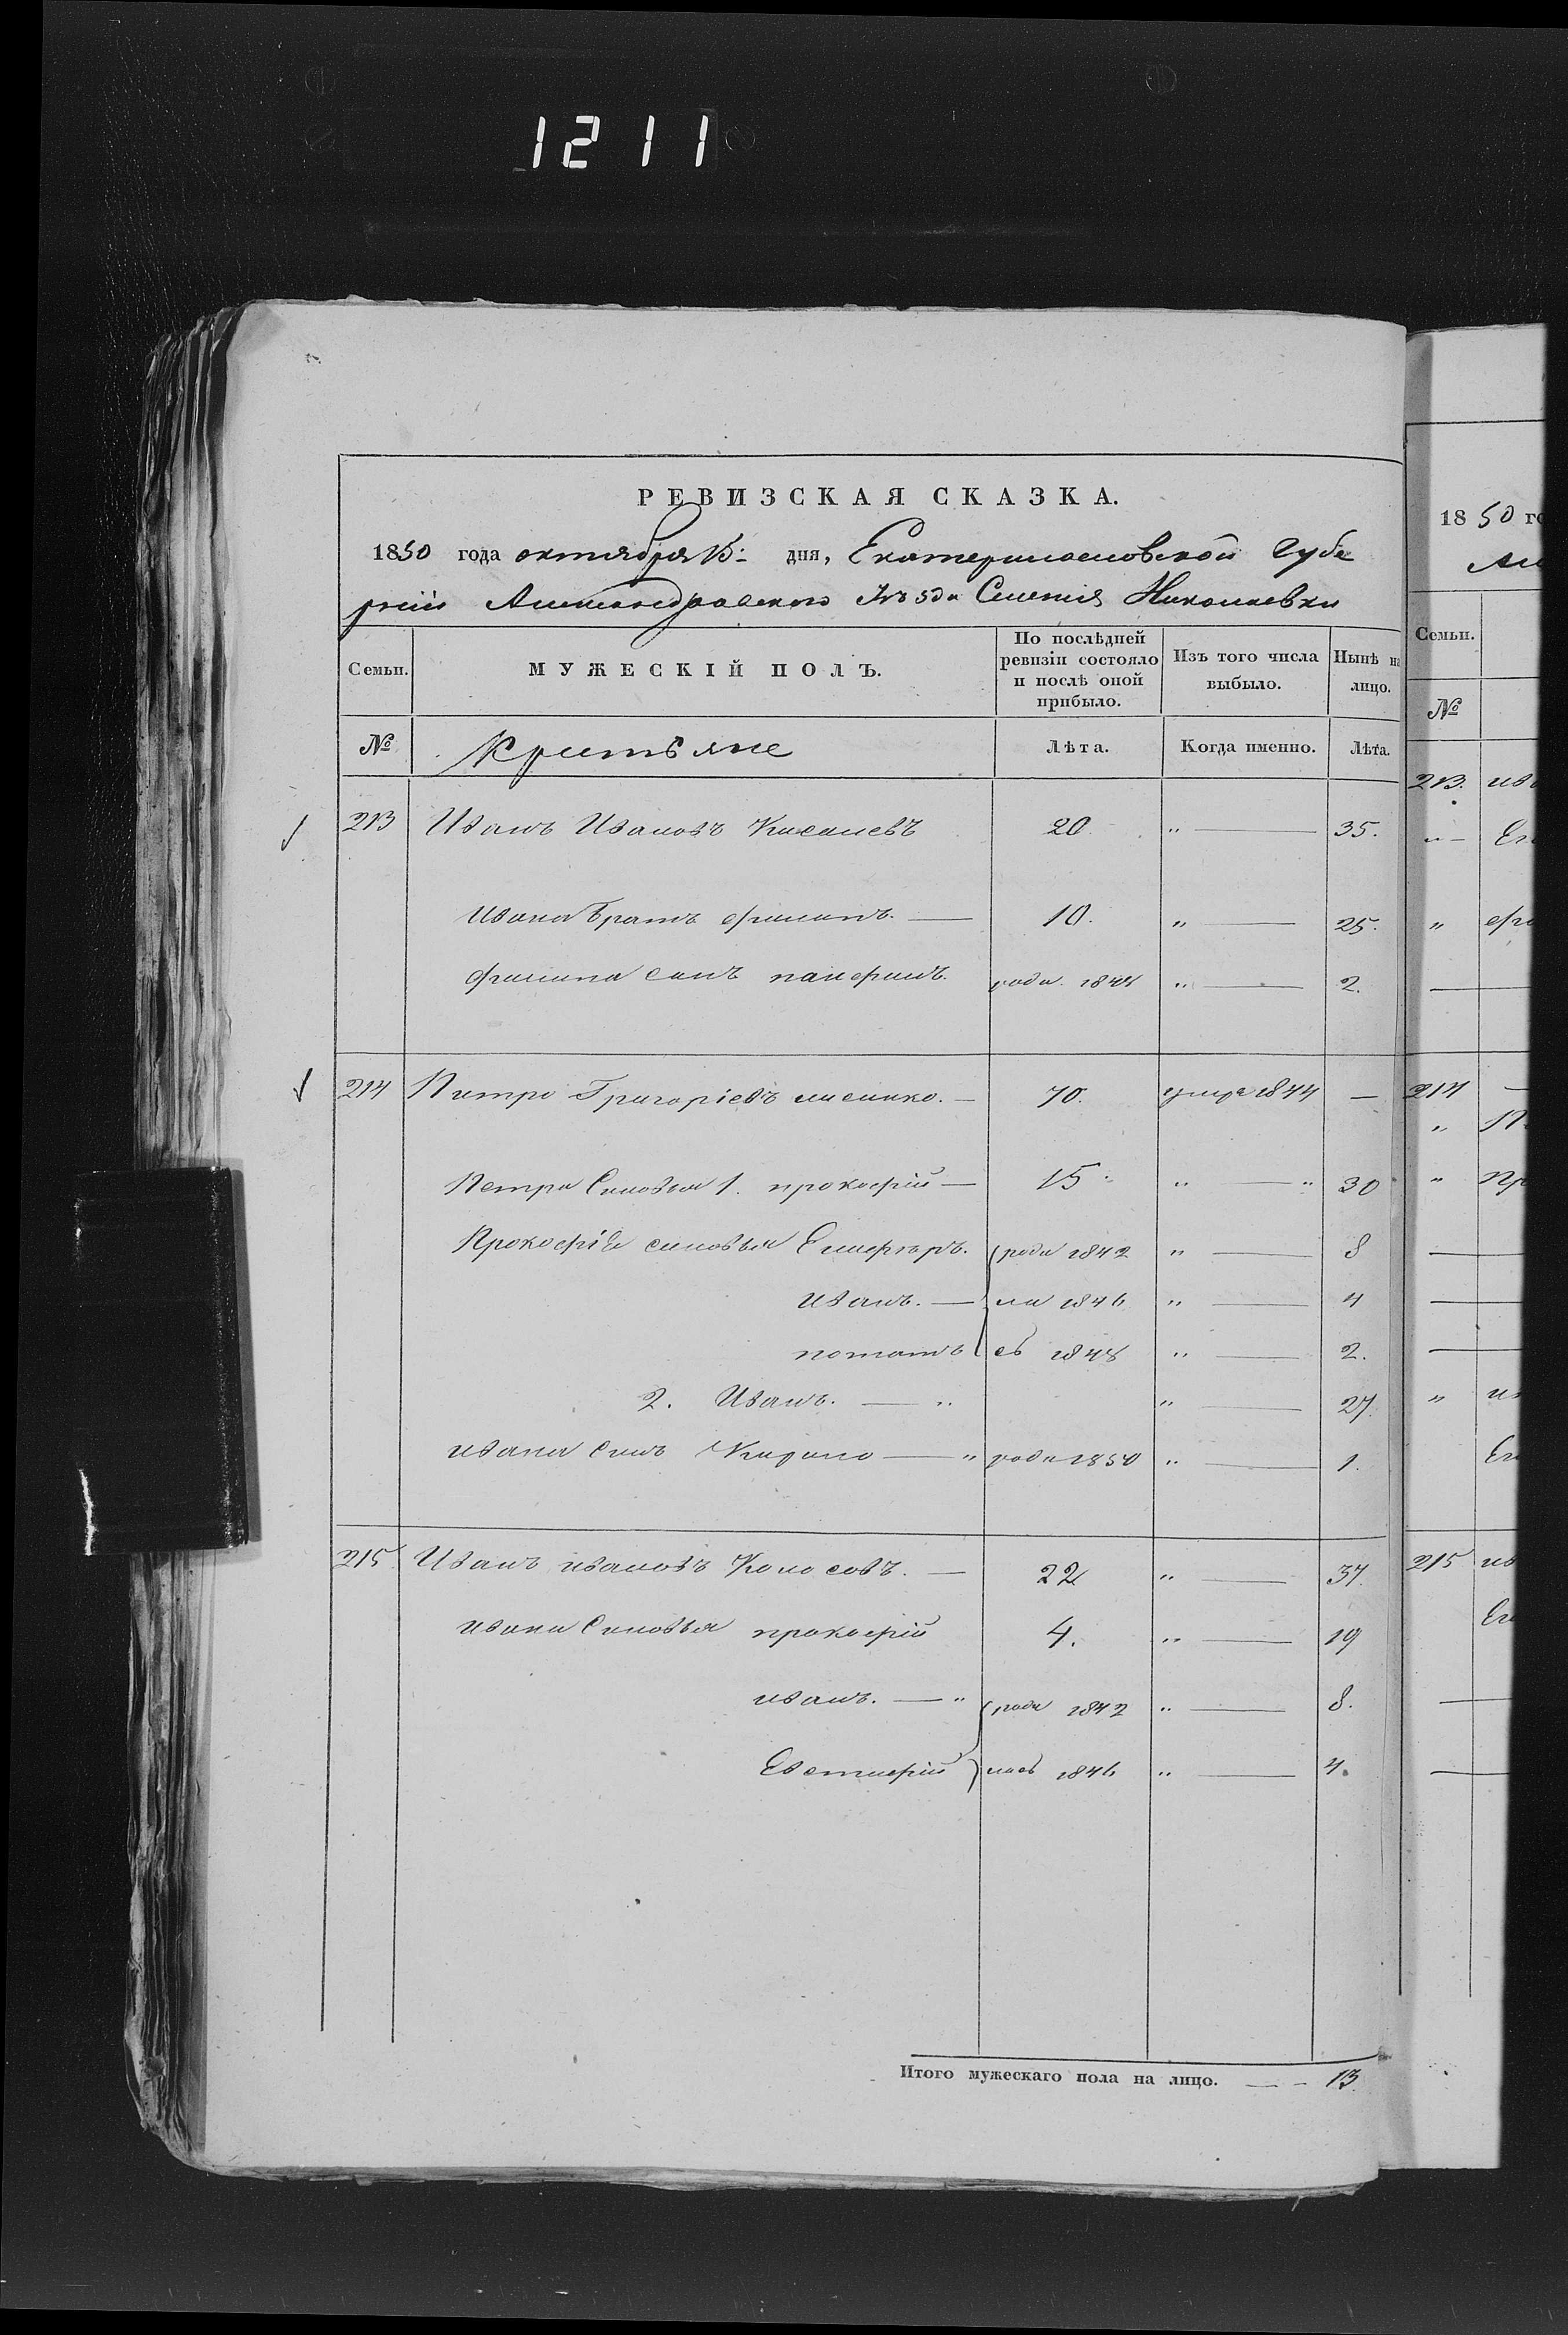 1211
РЕВИЗСКАЯ СКАЗКА.
1850 года октября 15: дня, Екатеринославской Губе
рніи Александровского Уѣзда Селенія Николаевки
Семьи. МУЖЕСКІЙ ПОЛЪ. По послѣдней ревизіи состояло и послѣ оной прибыло. Изъ того числа выбыло. Нынѣ на лицо.
№ Крестьяне Лѣта. Когда именно. Лѣта.
213 Иванъ Ивановъ 20. " — 35.
Ивана Братъ филипъ. — 10. " — 25.
филипа синъ панфилъ. роди. 1848 " — 2.
214 Питро Григоріевъ лисенко. — 70. умре 1844 —
Петра Синовья 1. прокофій — 15. " — " 30
Прокофія синовья Елифѣръ. роди 1842 " — 8
иванъ. — ли 1846 " — 4
потапъ сь 1848 " — 2.
2. Иванъ. — " " — 27.
ивана Синъ Кирило — " роди 1850 " — 1.
215 Иванъ ивановъ Колосовъ. — 22 " — 37.
ивана Синовья прокофій 4. " — 19
иванъ. — " роди 1842 " — 8.
Евстифій лись 1846 " — 4.
Итого мужескаго пола на лицо. — - 13.
18 50 го
Але
Семьи.
№
213. ива
" — Ег
" фи
—
214 —
" П
" Пр
—
—
—
" ив
Ег
215 ив
Ег
—
—